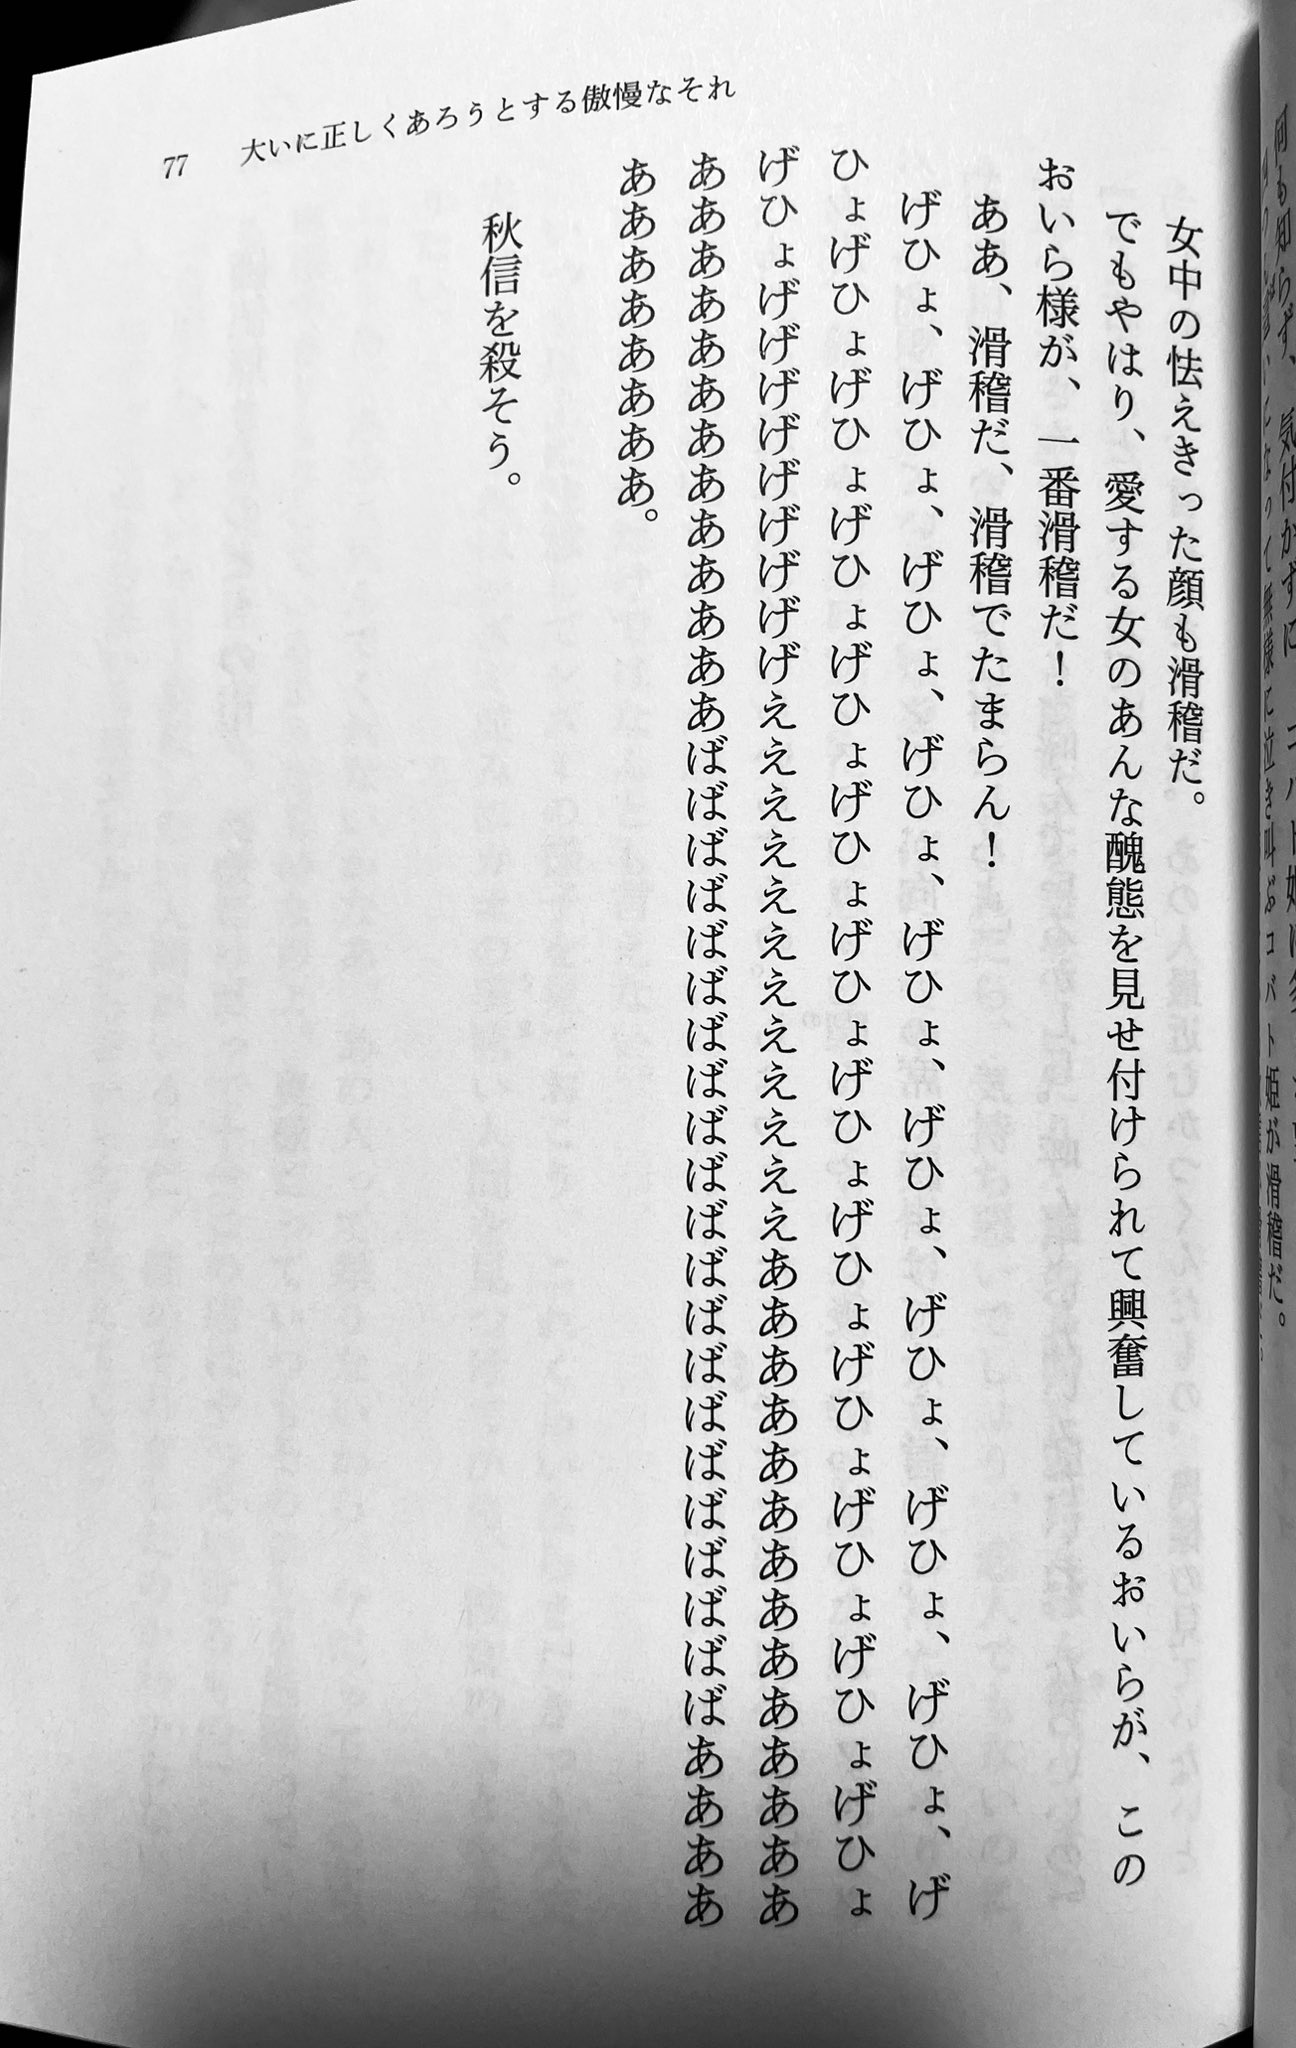 何も知らず、気付かずに
無様に泣き叫ぶコバト姫が滑稽だ。
女中の怯えきった顔も滑稽だ。
でもやはり、愛する女のあんな醜態を見せ付けられて興奮しているおいらが、この
おいら様が、一番滑稽だ！
ああ、滑稽だ、滑稽でたまらん！
げひょ、げひょ、げひょ、げひょ、げひょ、げひょ、げひょ、げひょ、げひょ、げ
ひょげひょげひょげひょげひょげひょげひょげひょげひょげひょげひょげひょげひょ
げひょげげげげげげげげげええええええええええええああああああああああああああ
あああああああああああああばばばばばばばばばばばばばばばばばばばばばああああ
ああああああああ。
秋信を殺そう。
77 大いに正しくあろうとする傲慢なそれ